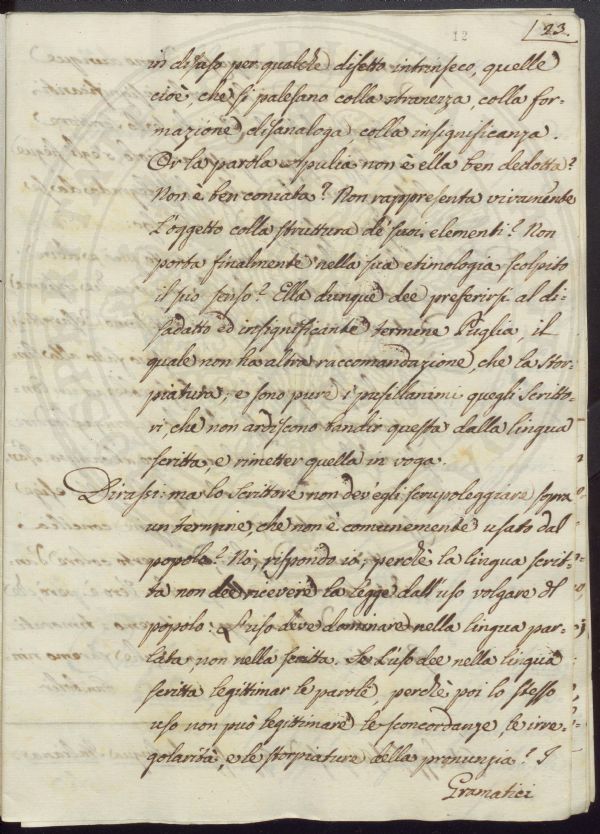 12
23.
in disuso per qualche difetto intrinseco, quelle
cioè, che si palesano colla stranezza, colla for-
mazione disanaloga colla insignificanza.
Or la parola Apulia non è ella ben dedotta?
Non è ben coniata? Non rappresenta vivamente
l'oggetto colla struttura de' suoi elementi? Non
porta finalmente nella sua etimologia scolpito
il suo senso? Ella dunque dee preferirsi al di-
sadatto ed insignificante termine Puglia, il
quale non ha altra raccomandazione, che la stor-
piatura, e sono pure i pusillanimi quegli Scritto-
ri, che non ardiscono bandir questa dalla lingua
scritta, e rimetter quella in voga.
Dirassi: ma lo Scrittore non dev'egli scrupoleggiare sopra
un termine, che non è comunemente usato dal
popolo? Nò, rispondo io; perchè la lingua scrit-
ta non dee ricevere la legge dall'uso volgare del
popolo. L'uso deve dominare nella lingua par-
lata non nella scritta. Se l'uso dee nella lingua
scritta legittimar le parole, perchè poi lo stesso
uso non può legittimare le sconcordanze, le irre-
golarità, e le storpiature della pronunzia? I
Gramatici